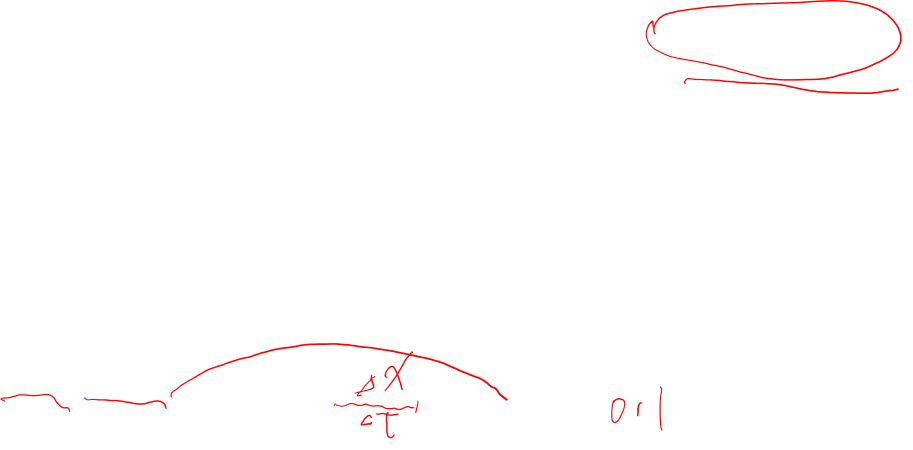 ΔX
ΔT
0r1